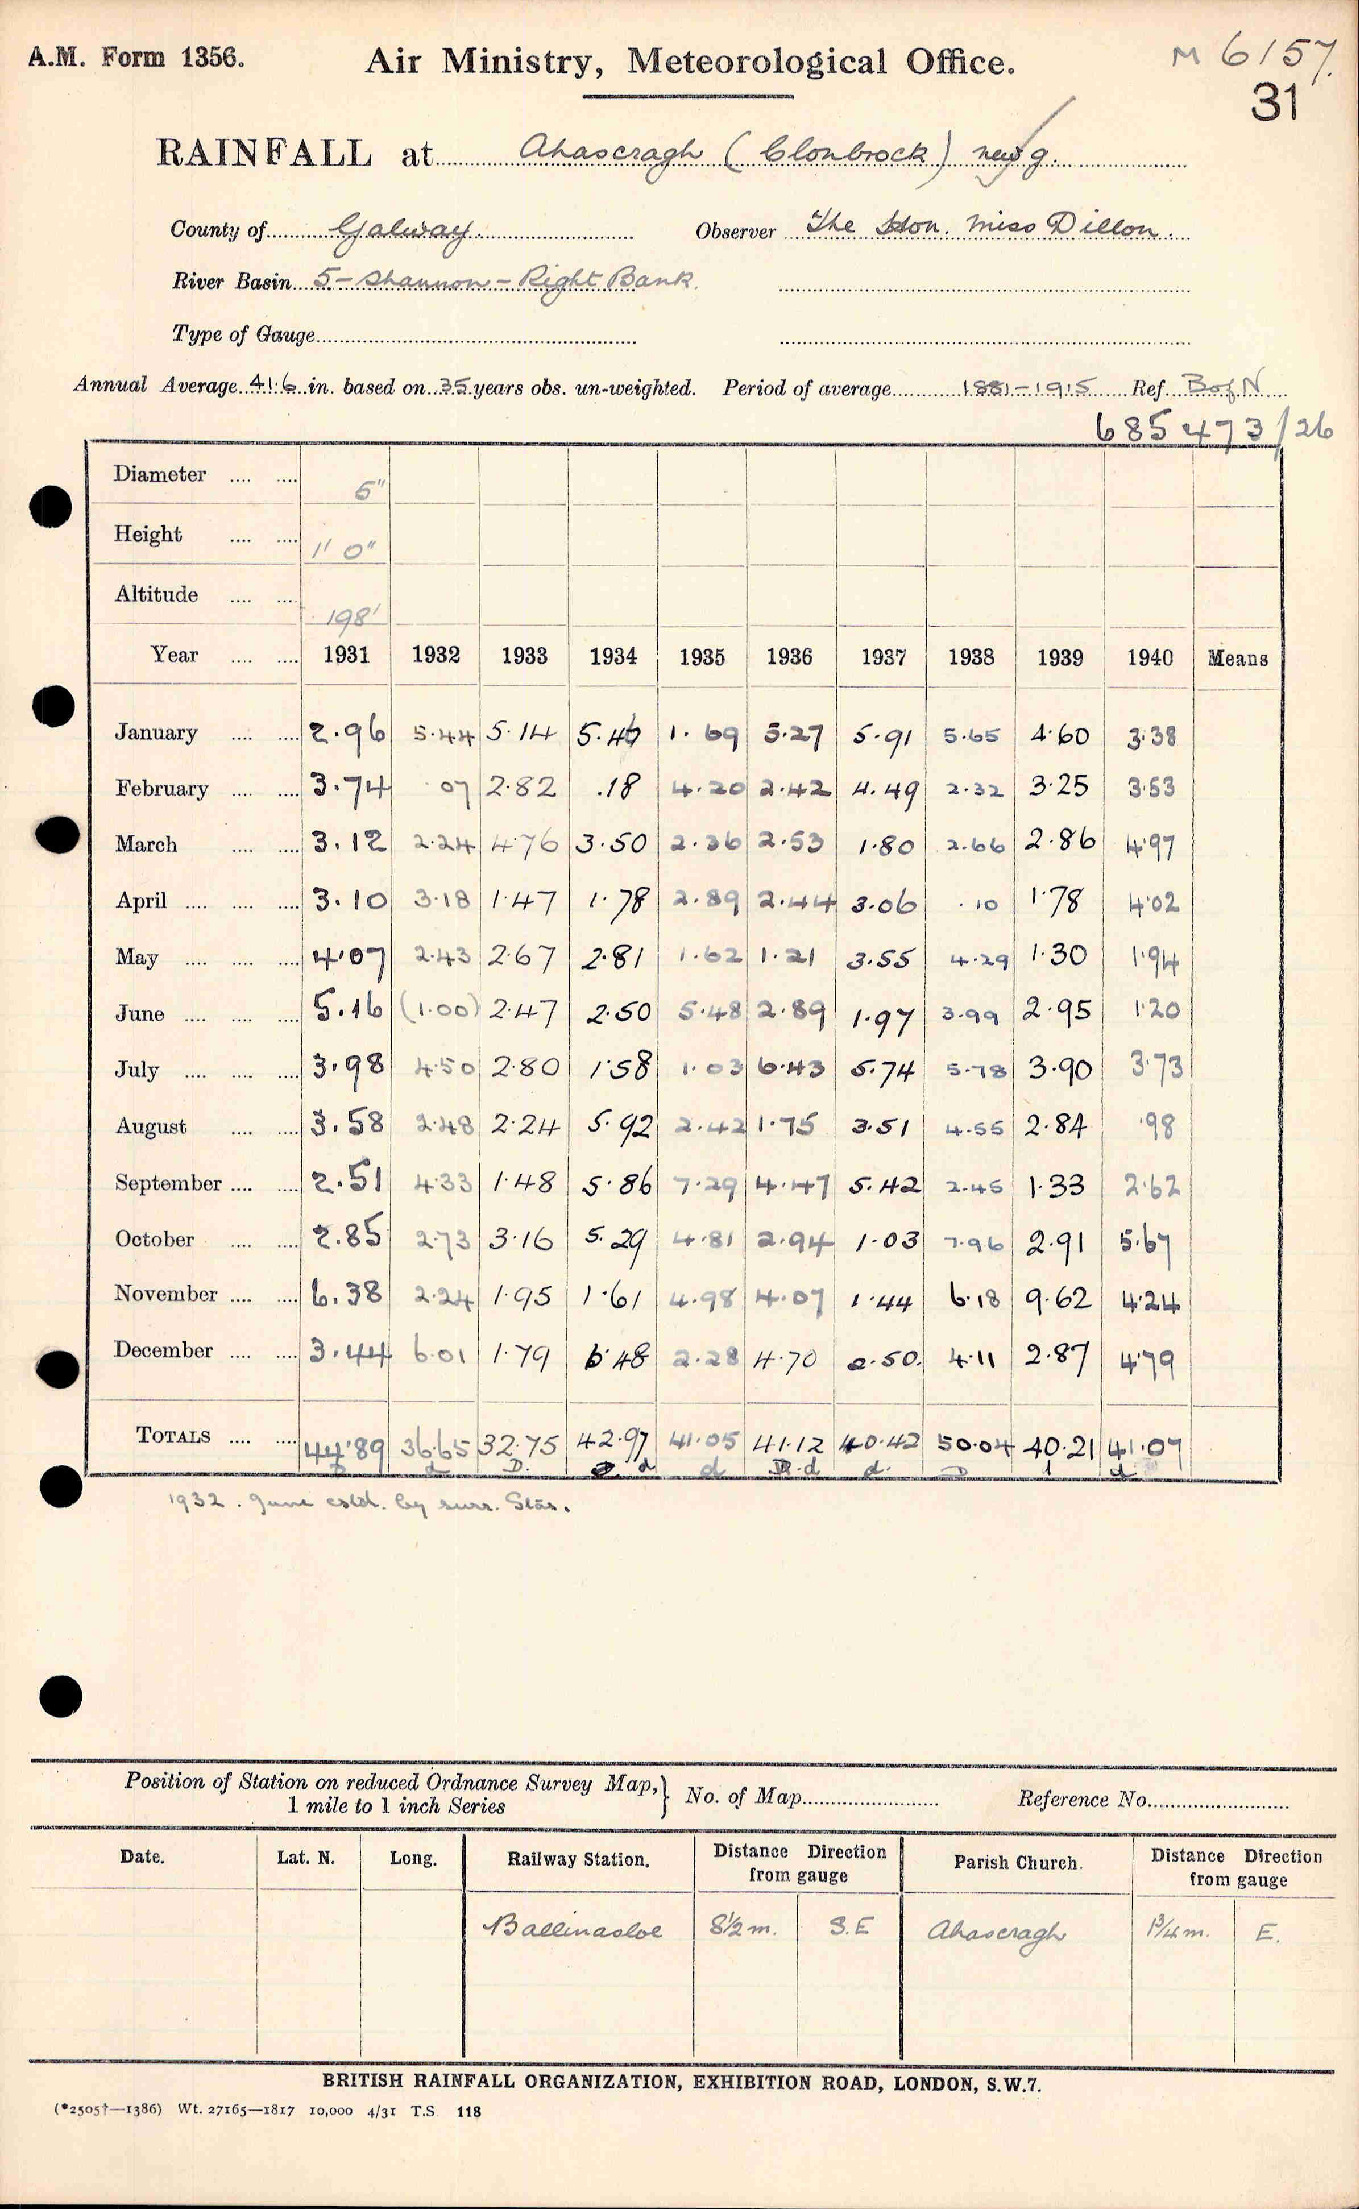 A.M. Form 1356.
Air Ministry, Meteorological Office.
M 6157.
31
RAINFALL at Ahascragh (Clonbrock) new g.
County of Galway. Observer The Hon. Miss Dillon.
River Basin 5 - Shannon - Right Bank.
Type of Gauge
Annual Average 41.6 in. based on 35 years obs. un-weighted. Period of average 1881-1915 Ref. B of N
685473/26
Diameter .... .... 5"
Height .... .... 1' 0"
Altitude .... .... 198'
Year .... .... 1931 1932 1933 1934 1935 1936 1937 1938 1939 1940 Means
January .... .... 2.96 5.44 5.14 5.46 1.69 5.27 5.91 5.65 4.60 3.38
February .... .... 3.74 .07 2.82 .18 4.20 2.42 4.49 2.32 3.25 3.53
March .... .... 3.12 2.24 4.76 3.50 2.36 2.53 1.80 2.66 2.86 4.97
April .... .... .... 3.10 3.18 1.47 1.78 2.89 2.44 3.06 .10 1.78 4.02
May .... .... .... 4.07 2.43 2.67 2.81 1.62 1.21 3.55 4.29 1.30 1.94
June .... .... .... 5.16 (1.00) 2.47 2.50 5.48 2.89 1.97 3.99 2.95 1.20
July .... .... .... 3.98 4.50 2.80 1.58 1.03 6.43 5.74 5.78 3.90 3.73
August .... .... 3.58 2.48 2.24 5.92 2.42 1.75 3.51 4.55 2.84 .98
September .... .... 2.51 4.33 1.48 5.86 7.29 4.47 5.42 2.45 1.33 2.62
October .... .... 2.85 2.73 3.16 5.29 4.81 2.94 1.03 7.96 2.91 5.67
November .... .... 6.38 2.24 1.95 1.61 4.98 4.07 1.44 6.18 9.62 4.24
December .... .... 3.44 6.01 1.79 6.48 2.28 4.70 2.50 4.11 2.87 4.79
TOTALS .... .... 44.89 36.65 32.75 42.97 41.05 41.12 40.42 50.04 40.21 41.07
1932. June estd. by surr. Stns.
Position of Station on reduced Ordnance Survey Map, } No. of Map Reference No.
1 mile to 1 inch Series
Date. Lat. N. Long. Railway Station. Distance Direction from gauge Parish Church. Distance Direction from gauge
Ballinasloe 8½ m. S.E Ahascragh 1¾ m. E.
BRITISH RAINFALL ORGANIZATION, EXHIBITION ROAD, LONDON, S.W.7.
(*2505†—1386) Wt. 27165—1817 10,000 4/31 T.S. 118